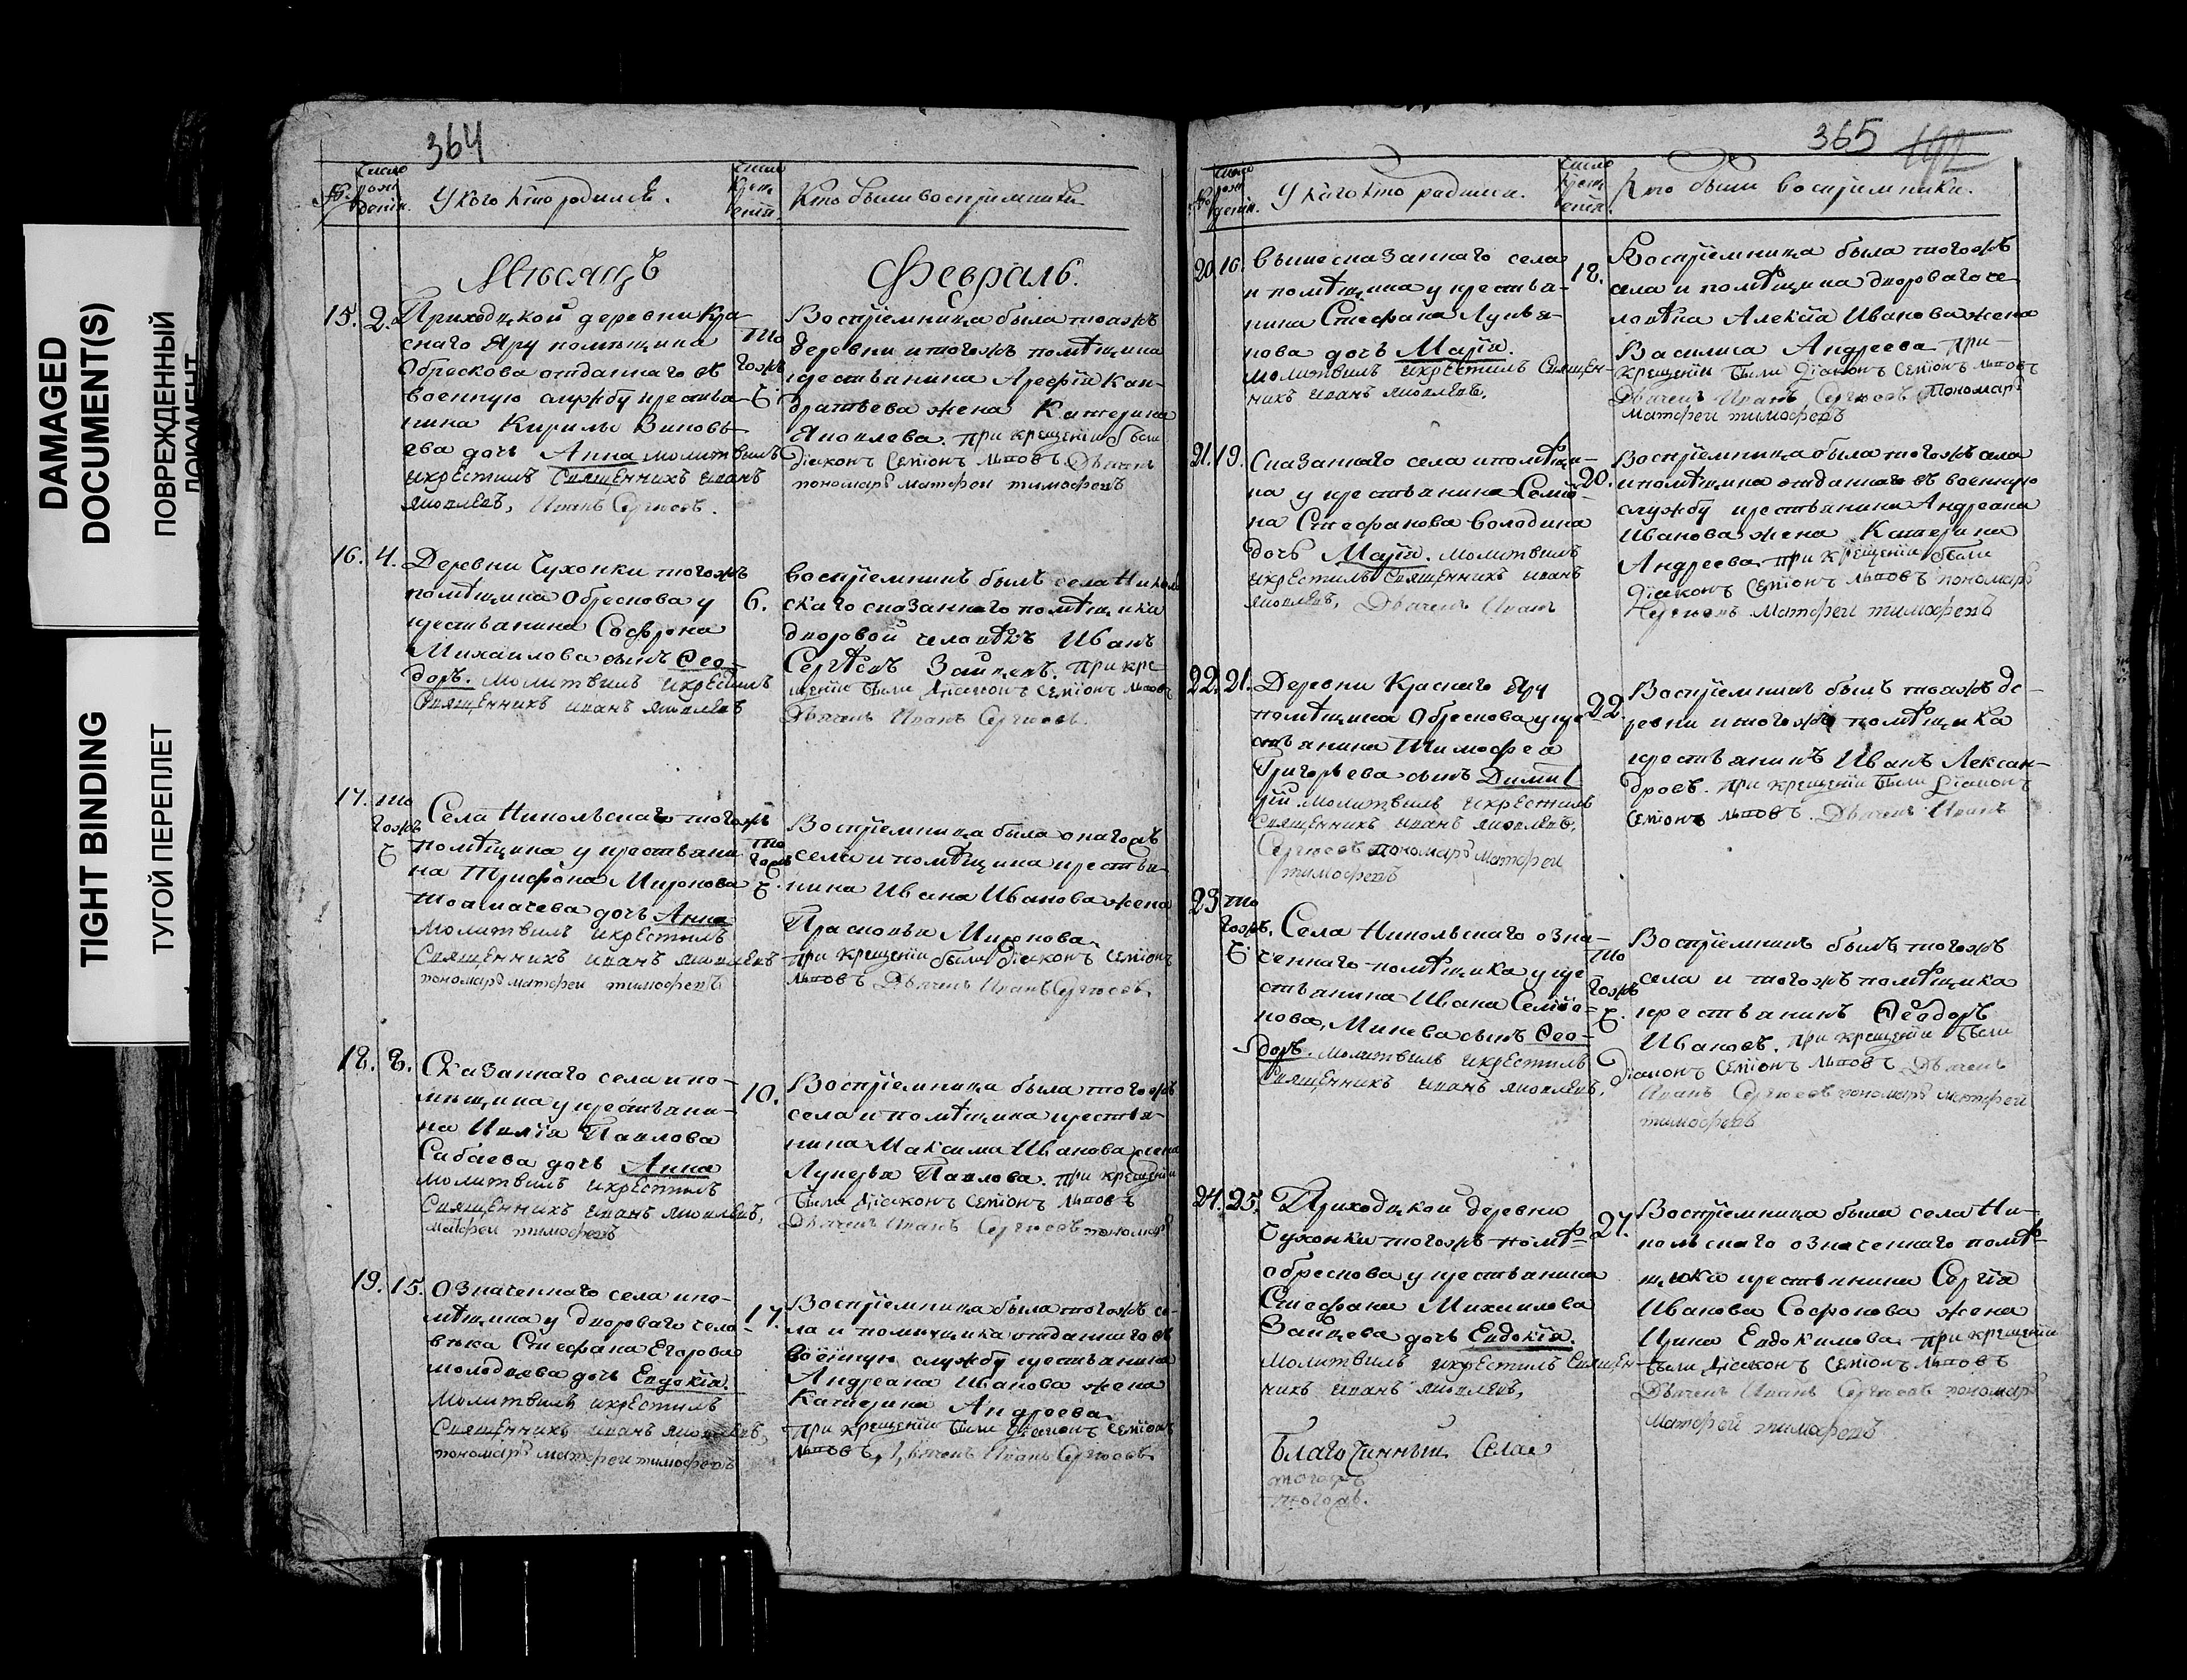 DAMAGED
DOCUMENT(S)
ПОВРЕЖДЕННЫЙ
ДОКУМЕНТ
TIGHT BINDING
ТУГОЙ ПЕРЕПЛЕТ
364
№.
число
рож
денія.
У кого кто родился.
число
крещ
енія
Кто были воспріемники
Мѣсяцъ
Февраль.
15. 2.
Приходской деревни Кра-
снаго Яру помѣщика
Обрескова отданнаго въ
военную службу крестья-
нина Кирилы Зиновь-
ева дочь Анна молитвилъ
икрестилъ Священникъ иванъ
яковлевъ, Иванъ Сергѣевъ.
то
гожъ
Ч
Воспріемница была тоежъ
деревни итогожъ помѣщика
крестьянина Арефія Кан-
дратьева жена Катерина
Яковлева. при крещеніи были
діаконъ Семіонъ львовъ. Дьячекъ
пономарь матфеи тимофеевъ
16. 4.
Деревни Чухонки тогожъ
помѣщика Обрескова у
крестьянина Софрона
Михаилова сынъ Ѳео-
доръ. молитвилъ икрестилъ
Священникъ иванъ яковлевъ
6.
воспріемникъ былъ села Николь
скаго сказаннаго помѣщика
дворовой человѣкъ Иванъ
Сергѣевъ Заицевъ. при кре
щеніи были Діаконъ Семіонъ львовъ
Дьячекъ Иванъ Сергѣевъ.
17. то
гожъ
Ч
Села Никольскаго тогожъ
помѣщика у крестьяни
на Трифона Миронова
Толмачева дочь Анна
молитвилъ икрестилъ
Священникъ иванъ яковлевъ
пономарь матфеи тимофеевъ
то
гожъ
Ч.
Воспріемница была онагожъ
села и помѣщика крестья-
нина Ивана Иванова жена
Прасковья Миронова
при крещеніи были Діаконъ Семіонъ
львовъ Дьячекъ Иванъ Сергѣевъ.
18. 8.
Сказаннаго села и по-
мѣщика у крестьяни-
на Илія Павлова
Сабаева дочь Анна
молитвилъ икрестилъ
Священникъ иванъ яковлевъ,
матфеи тимофеевъ
10.
Воспріемница была тогожъ
села и помѣщика крестья-
нина Максима Иванова жена
Лукерья Павлова. при крещеніи
были Діаконъ Семіонъ львовъ
Дьячекъ Иванъ Сергѣевъ пономарь
19. 15.
Означеннаго села и по-
мѣщика у двороваго чело-
вѣка Стефана Егорова
молодцева дочь Евдокія.
молитвилъ икрестилъ
Священникъ иванъ яковлевъ,
пономарь матфеи тимофеевъ
17.
Воспріемница была тогожъ се-
ла и помѣщика отданнаго въ
военную службу крестьянина
Андреана Иванова жена
Катерина Андреева
при крещеніи были Діаконъ Семіонъ
львовъ, Дьячекъ Иванъ Сергѣевъ
365
192
№
число
рож
денія.
У кого кто родился.
число
крещ
енія.
Кто были воспріемники.
20. 16.
вышесказаннаго села
и помѣщика у крестья-
нина Стефана Лукья-
нова дочь Марія.
молитвилъ икрестилъ Священ-
никъ иванъ яковлевъ.
18.
Воспріемница была тогожъ
села и помѣщика двороваго че
ловѣка Алексія Иванова жена
Василиса Андреева при-
крещеніи были Діаконъ Семіонъ львовъ
Дьячекъ Иванъ Сергѣевъ Пономарь
матфеи тимофеевъ
21. 19.
Сказаннаго села ипомѣщи-
ка у крестьянина Семіо-
на Стефанова володина
дочь Марія. молитвилъ
икрестилъ Священникъ иванъ
яковлевъ, Дьячекъ Иванъ
20.
Воспріемница была тогожъ села
ипомѣщика отданнаго въ военную
службу крестьянина Андреана
Иванова жена Катерина
Андреева. при крещеніи были
Діаконъ Семіонъ львовъ пономарь
Сергѣевъ Матфеи тимофеевъ
22. 21.
Деревни Краснаго Яру
помѣщика Обрескова укре
стьянина Тимофея
Григорьева сынъ Димит
рій молитвилъ икрестилъ
Священникъ иванъ яковлевъ.
Сергѣевъ пономарь матфеи
тимофеевъ
22.
Воспріемникъ былъ тоежъ де-
ревни итогожъ помѣщика
крестьянинъ Иванъ Лексан-
дровъ. при крещеніи были Діаконъ
Семіонъ львовъ. Дьячекъ Иванъ
23 то
гожъ.
Ч
Села Никольскаго озна-
ченнаго помѣщика у кре
стьянина Ивана Семіо-
нова, Минева сынъ Ѳео-
доръ. молитвилъ икрестилъ
Священникъ иванъ яковлевъ.
то
гожъ
Ч.
Воспріемникъ былъ тогожъ
села и тогожъ помѣщика
крестьянинъ Ѳеодоръ
Ивановъ. при крещеніи были
Діаконъ Семіонъ львовъ Дьячекъ
Иванъ Сергѣевъ пономарь матфеи
тимофеевъ
24. 25.
Приходской деревни
Чухонки тогожъ помѣ-
обрескова у крестьянина
Стефана Михаилова
Заицева дочь Евдокія.
молитвилъ икрестилъ Священ-
никъ иванъ яковлевъ,
27.
Воспріемница была села Ни-
кольскаго означеннаго помѣ-
щика крестьянина Сергія
Иванова Софронова жена
Ирина Евдокимова при крещеніи
были Діаконъ Семіонъ львовъ
Дьячекъ Иванъ Сергѣевъ пономарь
Матфей тимофеевъ
Благочинныи Села